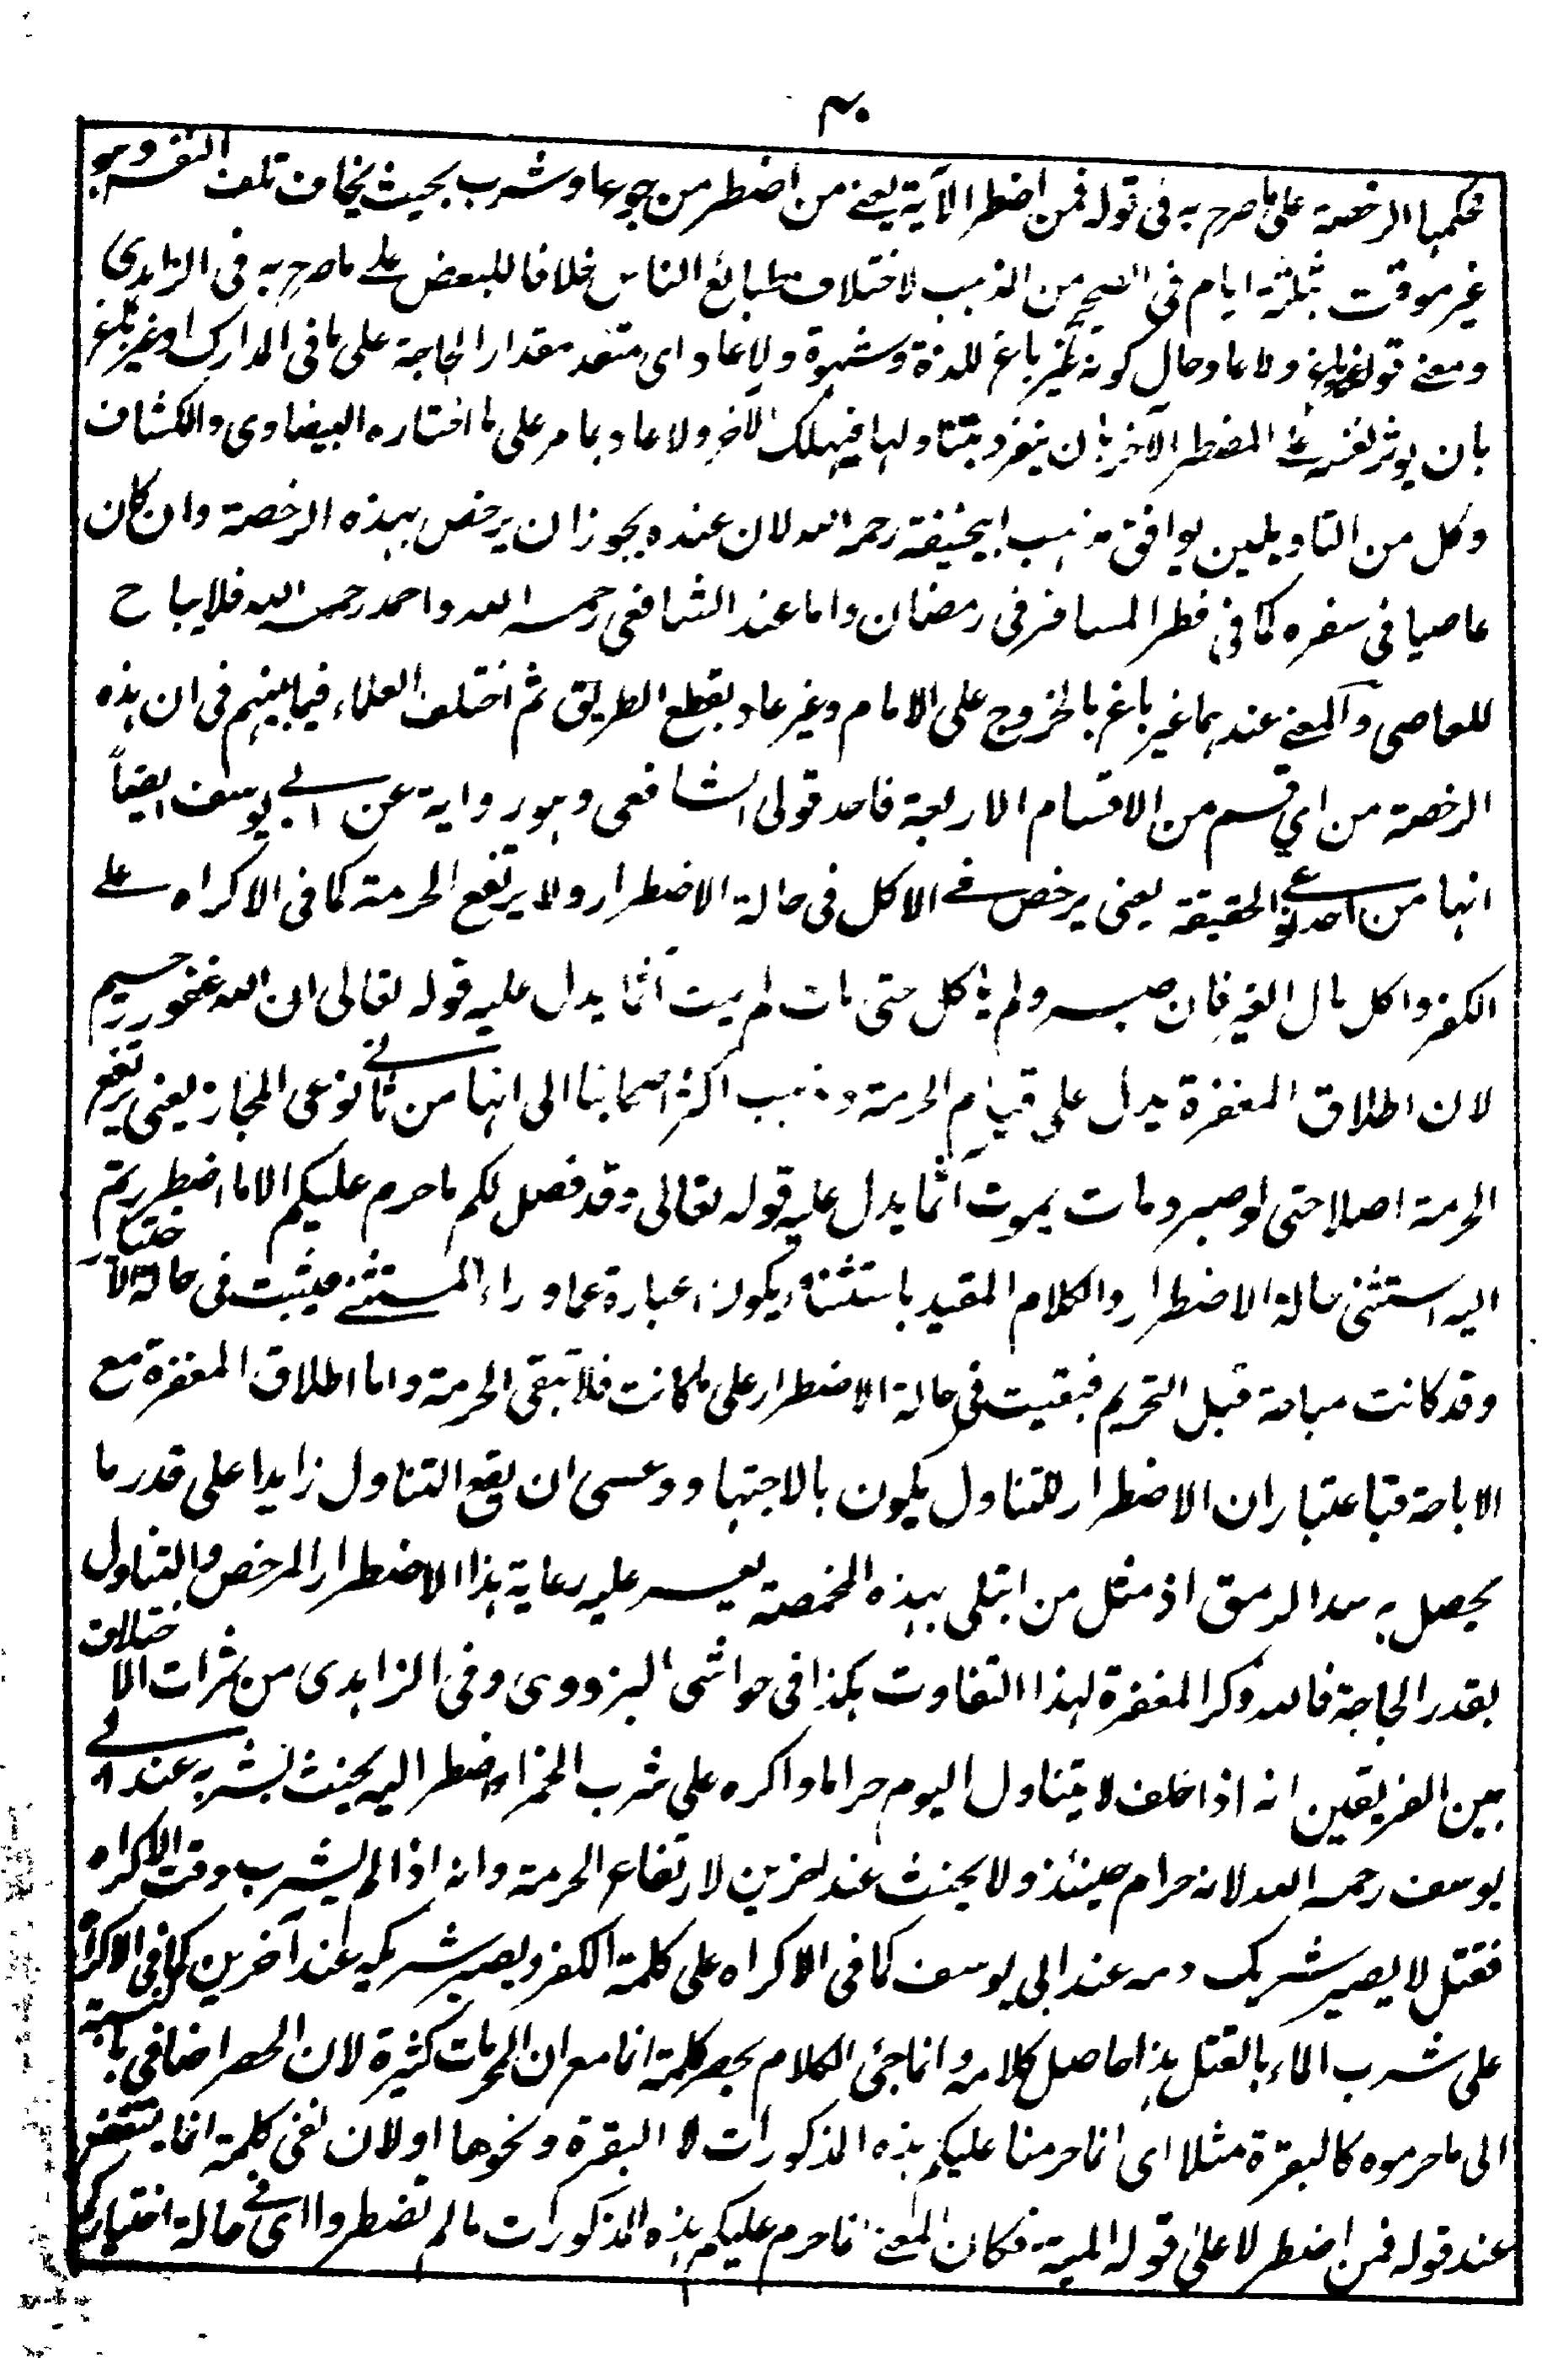 ۴۰
فحكمها الرخصة على ما صرح به فى قوله فمن اضطر الآية يعنے من اضطر من جوع او شرب بحيث يخاف تلف النفس وهو
غير موقت بثلثة ايام فى الصحيح من المذهب لاختلاف طبائع الناس خلافا للبعض علے ما صرح به فى الزاهدى
ومعنے قوله غير باغ ولا عاد حال كونه غير باغ للذة وشهوة ولا عاد اى متعد مقدار الحاجة على ما فى المدارك او غير باغ
بان يوثر نفسه علے المضطر الآخر بان ينفرد بتناولها فيهلك الآخر ولا عاد بما مر على ما اختاره البيضاوى والكشاف
وكل من التاويلين يوافق مذهب ابيحنيفة رحمه الله لان عنده يجوز ان يرخص بهذه الرخصة وان كان
عاصيا فى سفره كما فى فطر المسافر فى رمضان واما عند الشافعى رحمه الله واحمد رحمه الله فلا يباح
للعاصى والمعنے عندهما غير باغ بالخروج على الامام وغير عاد بقطع الطريق ثم اختلف العلماء فيما بينهم فى ان هذه
الرخصة من اي قسم من الاقسام الاربعة فاحد قولى الشافعى وهو رواية عن ابے يوسف ايضاً
انها من احد نوعے الحقيقة يعنى يرخص فے الاكل فى حالة الاضطرار ولا يرتفع الحرمة كما فى الاكراه علے
الكفر واكل مال الغير فان صبر ولم ياكل حتى مات لم يمت آثما يدل عليه قوله تعالى ان الله غفور رحيم
لان اطلاق المغفرة يدل على قيام الحرمة وذهب اكثر اصحابنا الى انها من ثانے نوعى المجاز يعنى يرتفع
الحرمة اصلا حتى لو صبر ومات يموت آثما يدل عليه قوله تعالى وقد فصل لكم ما حرم عليكم الا ما اضطررتم
اليه استثنى حالة الاضطرار والكلام المقيد باستثناء يكون عبارة عما وراء المستثنے فيثبت فى حالة الاختيار
وقد كانت مباحة قبل التحريم فبقيت فى حالة الاضطرار على ما كانت فلا تبقى الحرمة واما اطلاق المغفرة مع
الاباحة فباعتبار ان الاضطرار للتناول يكون بالاجتهاد وعسى ان يقع التناول زايدا على قدر ما
يحصل به سد الرمق اذ مثل من ابتلى بهذه المخمصة يعسر عليه رعاية هذا الاضطرار المرخص والتناول
بقدر الحاجة فالله ذكر المغفرة لهذا التفاوت هكذا فى حواشى البزدوى وفى الزاهدى من ثمرات الاختلاف
بين الفريقين انه اذا حلف لا يتناول اليوم حراما واكره على شرب الخمر او اضطر اليه يحنث بشربه عند ابے
يوسف رحمه الله لانه حرام حينئذ ولا يحنث عند آخرين لارتفاع الحرمة وانه اذا لم يشرب وقت الاكراه
فقتل لا يصير شريك دمه عند ابى يوسف كما فى الاكراه على كلمة الكفر ويصير شريكه عند آخرين كما فى الاكراه
على شرب الماء بالقتل هذا حاصل كلامه وانما جئ الكلام بحصر كلمة انما مع ان المحرمات كثيرة لان الحصر اضافى بالنسبة
الى ما حرموه كالبقرة مثلا اى انما حرمنا عليكم هذه المذكورات لا البقرة ونحوها او لان نفى كلمة انما ينتقض
عند قوله فمن اضطر لا على قوله الميتة فكان المعنے انما حرم عليكم هذه المذكورات ما لم تضطروا اى فے حالة اختياركم